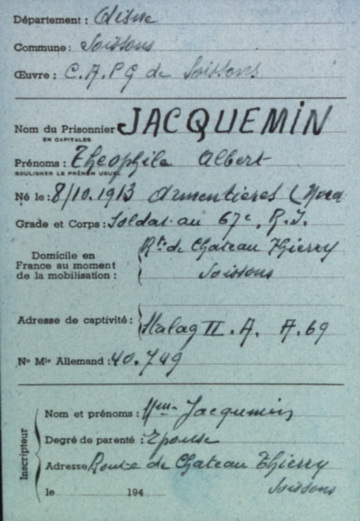 Département: Aisne
Commune: Soissons
Œuvre: C.A.P.G de Soissons
Nom du Prisonnier JACQUEMIN
EN CAPITALES
Prénoms: Théophile Albert
SOULIGNER LE PRÉNOM USUEL
Né le: 8/10.1913 Armentières (Nord
Grade et Corps: Soldat au 67e. R.I.
Domicile en
France au moment
de la mobilisation:
Rte de Chateau Thierry
Soissons
Adresse de captivité: Stalag II. A. A.69
No Mle Allemand: 40.749
Inscripteur
Nom et prénoms: Mme Jacquemin
Degré de parenté: Epouse
Adresse Route de Chateau Thierry
Soissons
le 194